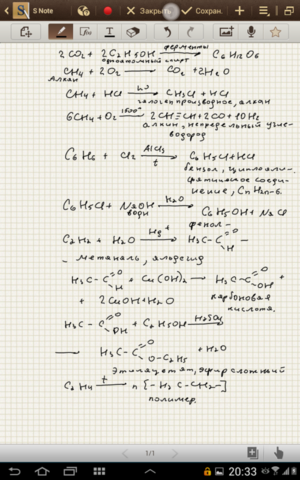 S Note
Закрыть
Сохран.
2CO₂ + 2C₂H₅OH ферменты→ C₆H₁₂O₆
одноатомный спирт
CH₄ + 2O₂ → CO₂ + 2H₂O
Алкан
CH₄ + HCl hν→ CH₃Cl + HCl
галогенпроизводное, алкан
6CH₄ + O₂ 1500°→ 2CH≡CH + 2CO + 10H₂
алкин, непредельный угле-
водород
C₆H₆ + Cl₂ AlCl₃→ t C₆H₅Cl + HCl
бензол, циклоали-
фатическое соеди-
нение, CnH2n-6.
C₆H₅Cl + NaOH H₂O→ C₆H₅-OH + NaCl
водн фенол -
C₂H₂ + H₂O Hg⁺→ H₃C-C O H -
- метаналь, альдегид
H₃C-C O H + Cu(OH)₂ → H₃C-C O OH +
+ 2CuOH + H₂O карбоновая
кислота.
H₃C-C O OH + C₂H₅OH H₂SO₄
→ H₃C-C O O-C₂H₅ + H₂O
Этилацетат, эфир сложный
C₂H₄ t→ n[-H₂C-CH₂-]
полимер.
1/1
20:33